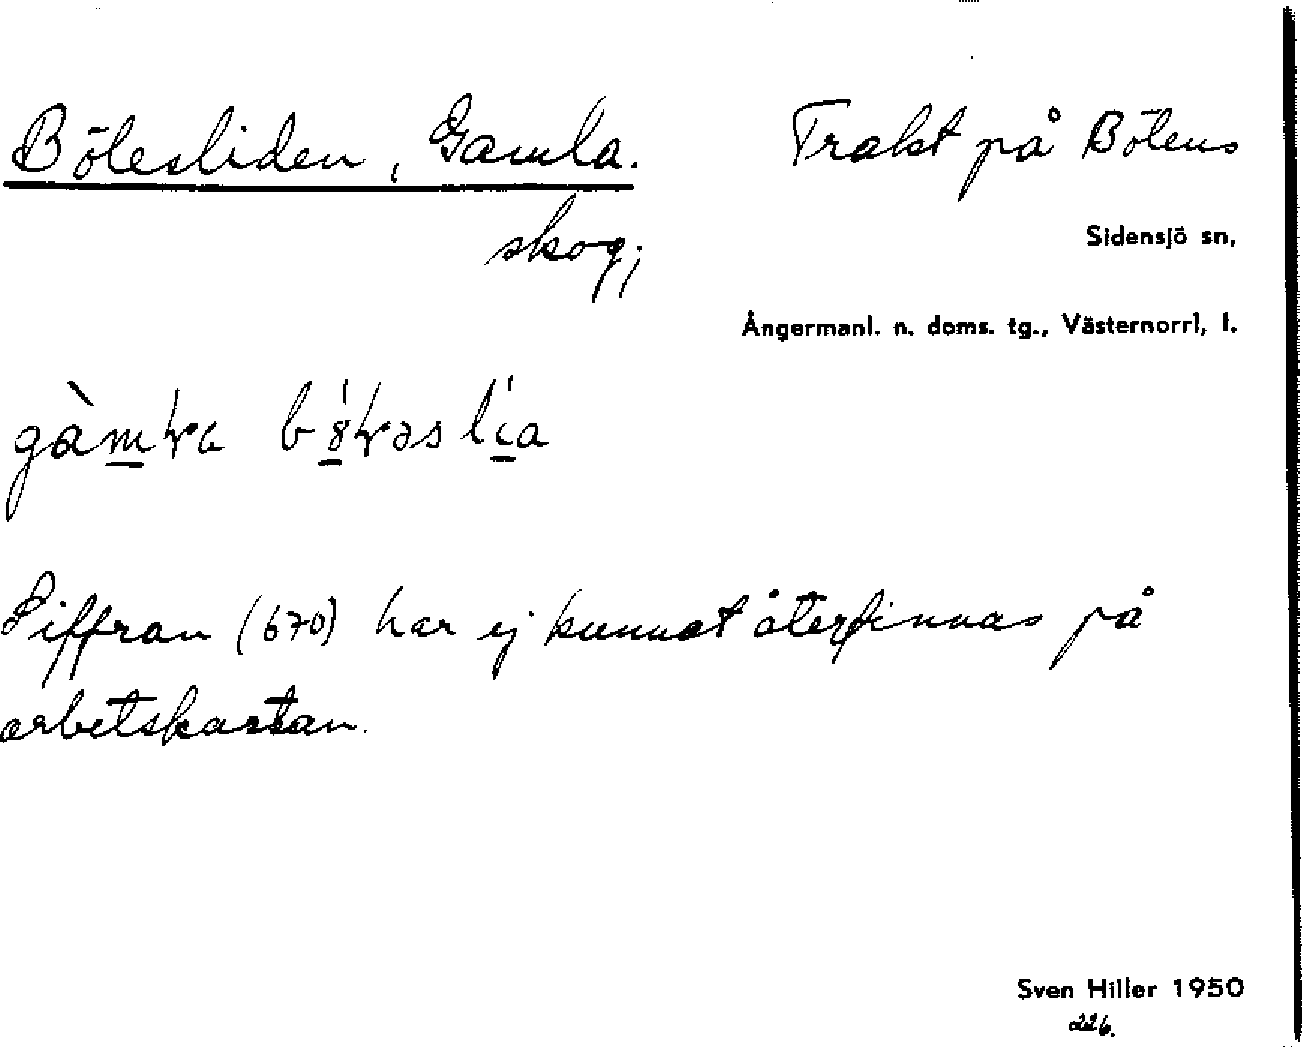 Bölesliden, Gamla.
Trakt på Bölens
skog;
Sidensjö sn,
Ångermanl. n. doms. tg., Västernorrl, l.
Siffran (670) har ej kunnat återfinnas på
arbetskartan.
Sven Hiller 1950
226.